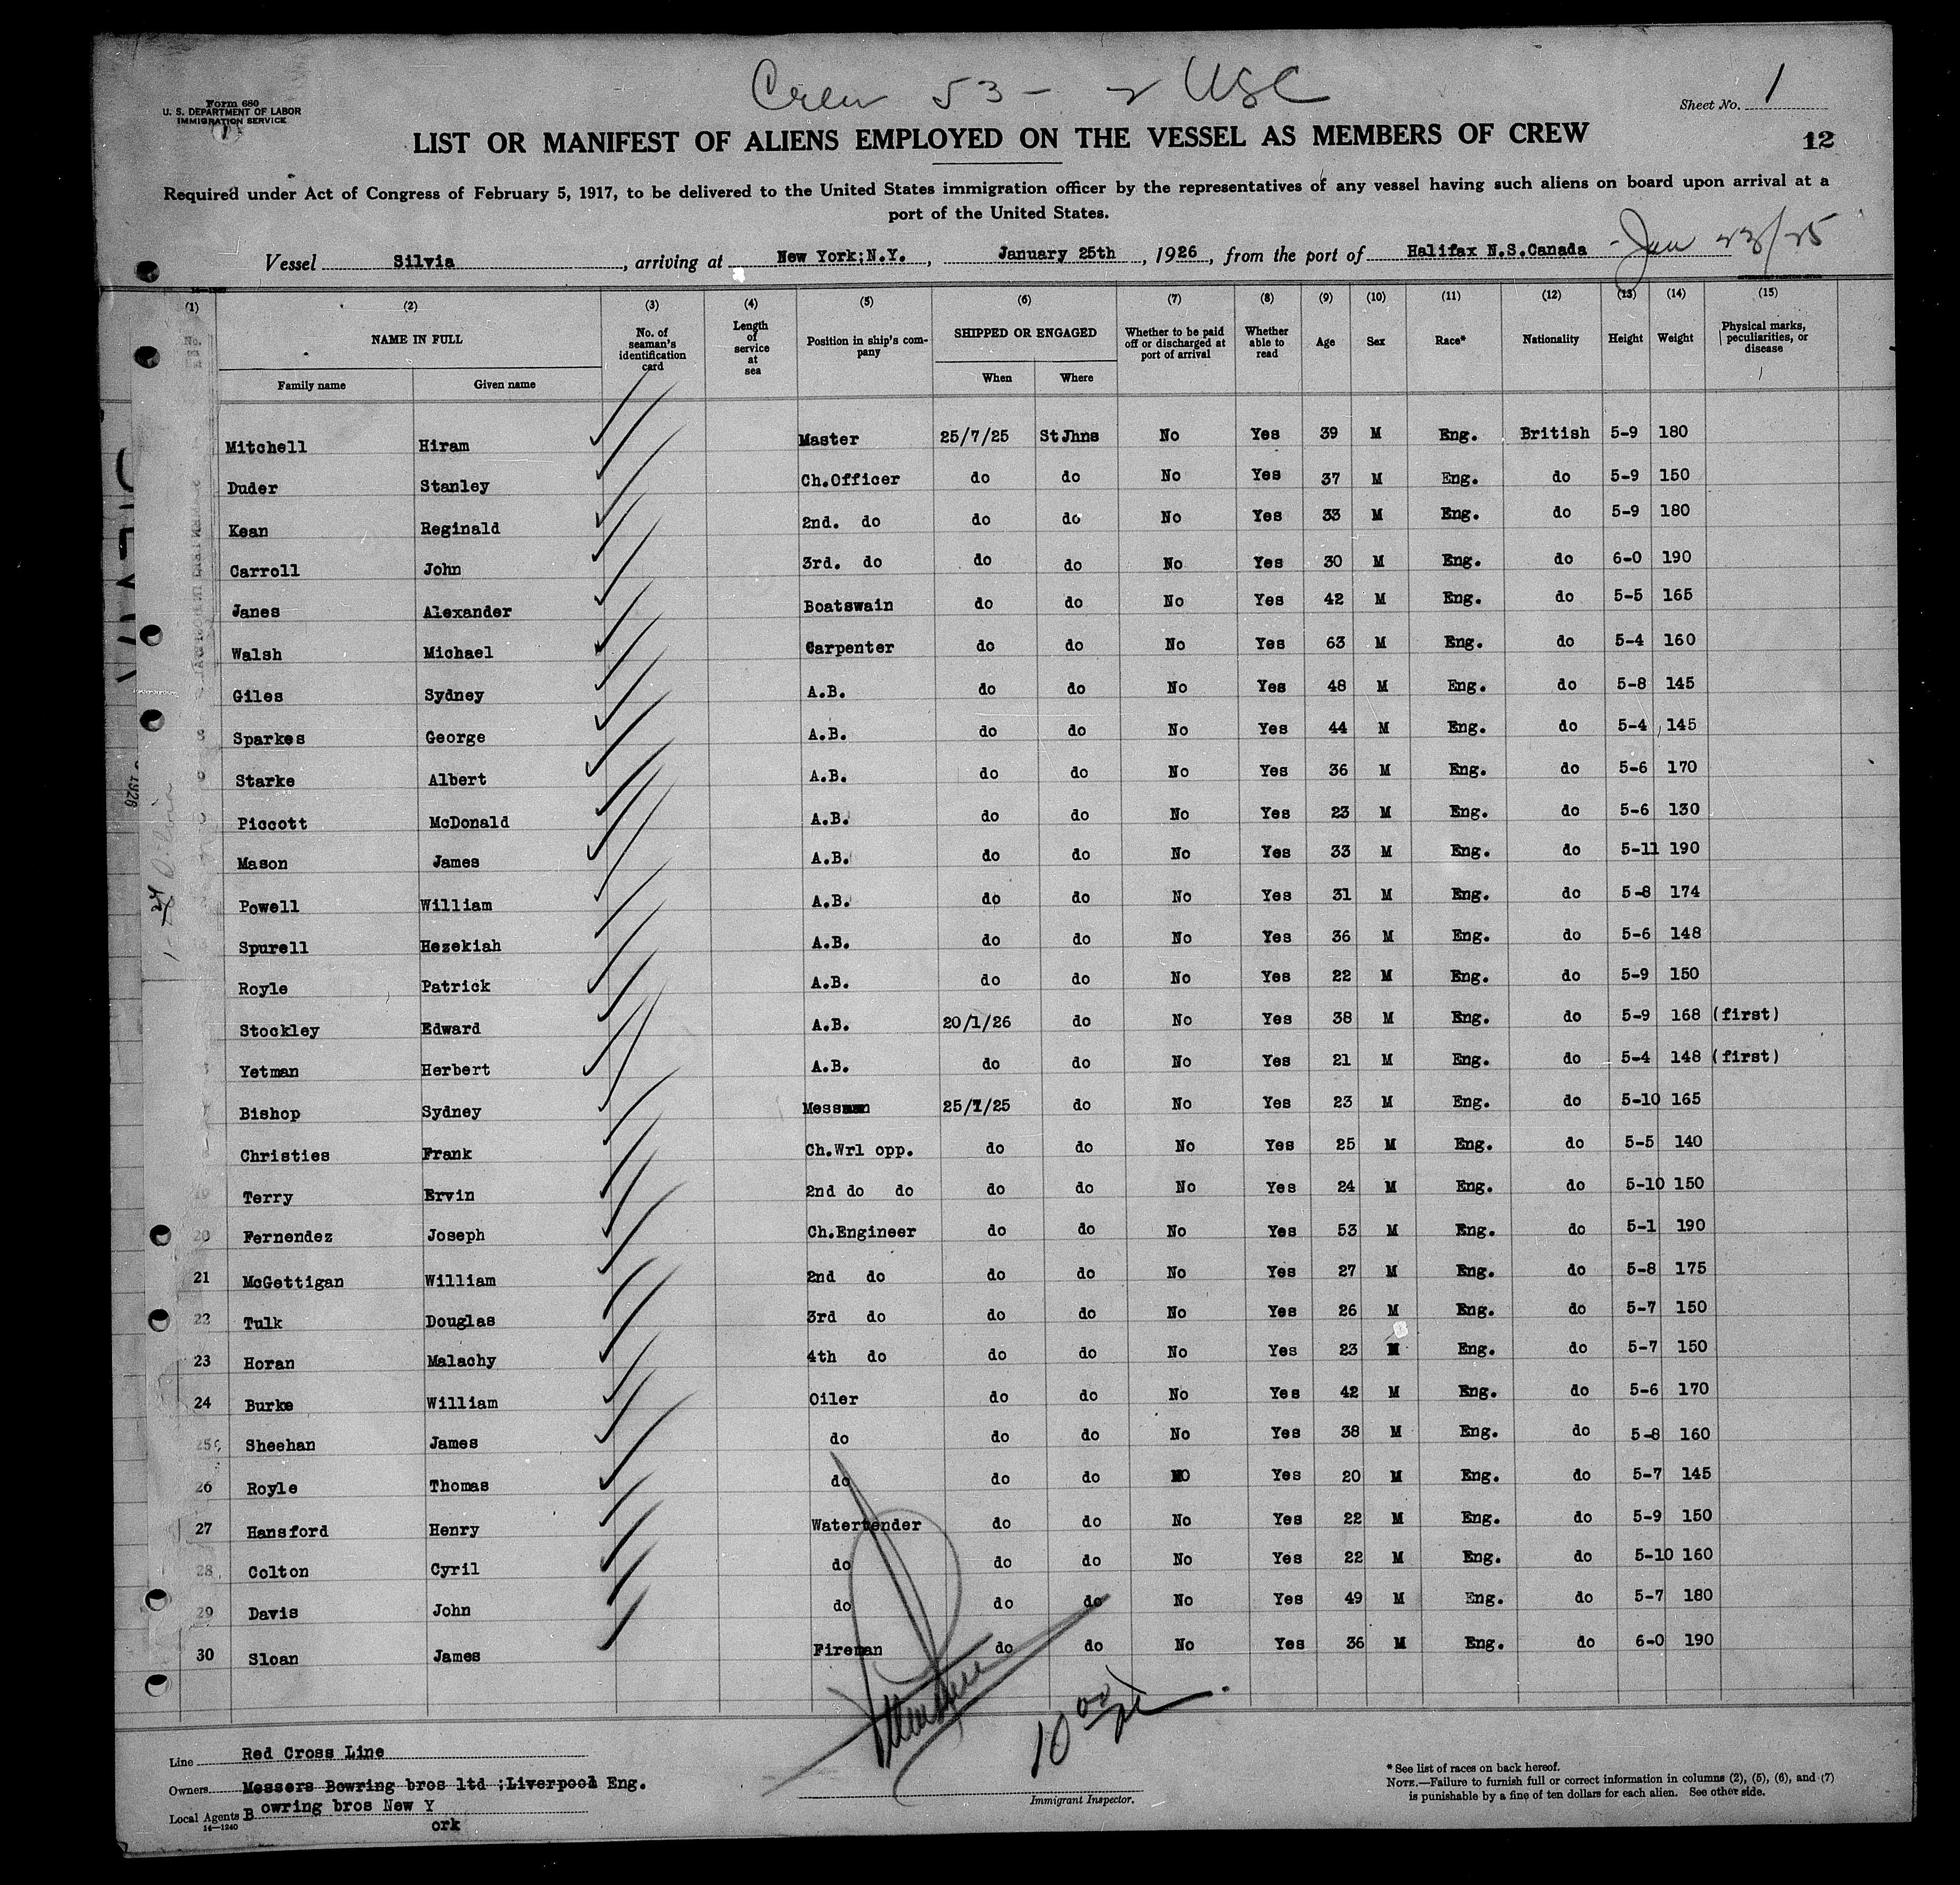 Crew 53 - 2 USC
Form 680
U. S. DEPARTMENT OF LABOR
IMMIGRATION SERVICE
Sheet No. 1
LIST OR MANIFEST OF ALIENS EMPLOYED ON THE VESSEL AS MEMBERS OF CREW
12
Required under Act of Congress of February 5, 1917, to be delivered to the United States immigration officer by the representatives of any vessel having such aliens on board upon arrival at a
port of the United States.
Vessel Silvia, arriving at New York;N.Y., January 25th, 1926, from the port of Halifax N.S.Canada - Jan 23/25
(1) (2) (3) (4) (5) (6) (7) (8) (9) (10) (11) (12) (13) (14) (15)
No. NAME IN FULL No. of seaman's identification card Length of service at sea Position in ship's company SHIPPED OR ENGAGED Whether to be paid off or discharged at port of arrival Whether able to read Age Sex Race* Nationality Height Weight Physical marks, peculiarities, or disease
Family name Given name When Where
Mitchell Hiram Master 25/7/25 StJhns No Yes 39 M Eng. British 5-9 180
Duder Stanley Ch.Officer do do No Yes 37 M Eng. do 5-9 150
Kean Reginald 2nd. do do do No Yes 33 M Eng. do 5-9 180
Carroll John 3rd. do do do No Yes 30 M Eng. do 6-0 190
Janes Alexander Boatswain do do No Yes 42 M Eng. do 5-5 165
Walsh Michael Carpenter do do No Yes 63 M Eng. do 5-4 160
Giles Sydney A.B. do do No Yes 48 M Eng. do 5-8 145
8 Sparkes George A.B. do do No Yes 44 M Eng. do 5-4 145
Starke Albert A.B. do do No Yes 36 M Eng. do 5-6 170
Piccott McDonald A.B. do do No Yes 23 M Eng. do 5-6 130
Mason James A.B. do do No Yes 33 M Eng. do 5-11 190
Powell William A.B. do do No Yes 31 M Eng. do 5-8 174
Spurell Hezekiah A.B. do do No Yes 36 M Eng. do 5-6 148
Royle Patrick A.B. do do No Yes 22 M Eng. do 5-9 150
Stockley Edward A.B. 20/1/26 do No Yes 38 M Eng. do 5-9 168 (first)
Yetman Herbert A.B. do do No Yes 21 M Eng. do 5-4 148 (first)
Bishop Sydney Messman 25/7/25 do No Yes 23 M Eng. do 5-10 165
Christies Frank Ch.Wrl opp. do do No Yes 25 M Eng. do 5-5 140
19 Terry Ervin 2nd do do do do No Yes 24 M Eng. do 5-10 150
20 Fernendez Joseph Ch.Engineer do do No Yes 53 M Eng. do 5-1 190
21 McGettigan William 2nd do do do No Yes 27 M Eng. do 5-8 175
22 Tulk Douglas 3rd do do do No Yes 26 M Eng. do 5-7 150
23 Horan Malachy 4th do do do No Yes 23 M Eng. do 5-7 150
24 Burke William Oiler do do No Yes 42 M Eng. do 5-6 170
25 Sheehan James do do do No Yes 38 M Eng. do 5-8 160
26 Royle Thomas do do do NO Yes 20 M Eng. do 5-7 145
27 Hansford Henry Watertender do do No Yes 22 M Eng. do 5-9 150
28 Colton Cyril do do do No Yes 22 M Eng. do 5-10 160
29 Davis John do do do No Yes 49 M Eng. do 5-7 180
30 Sloan James Fireman do do No Yes 36 M Eng. do 6-0 190
10 00
Line Red Cross Line
Owners Messers Bowring bros ltd ;Liverpool Eng.
Local Agents Bowring bros New Y
ork
14—1240
Immigrant Inspector.
* See list of races on back hereof.
NOTE.—Failure to furnish full or correct information in columns (2), (5), (6), and (7)
is punishable by a fine of ten dollars for each alien. See other side.
1926